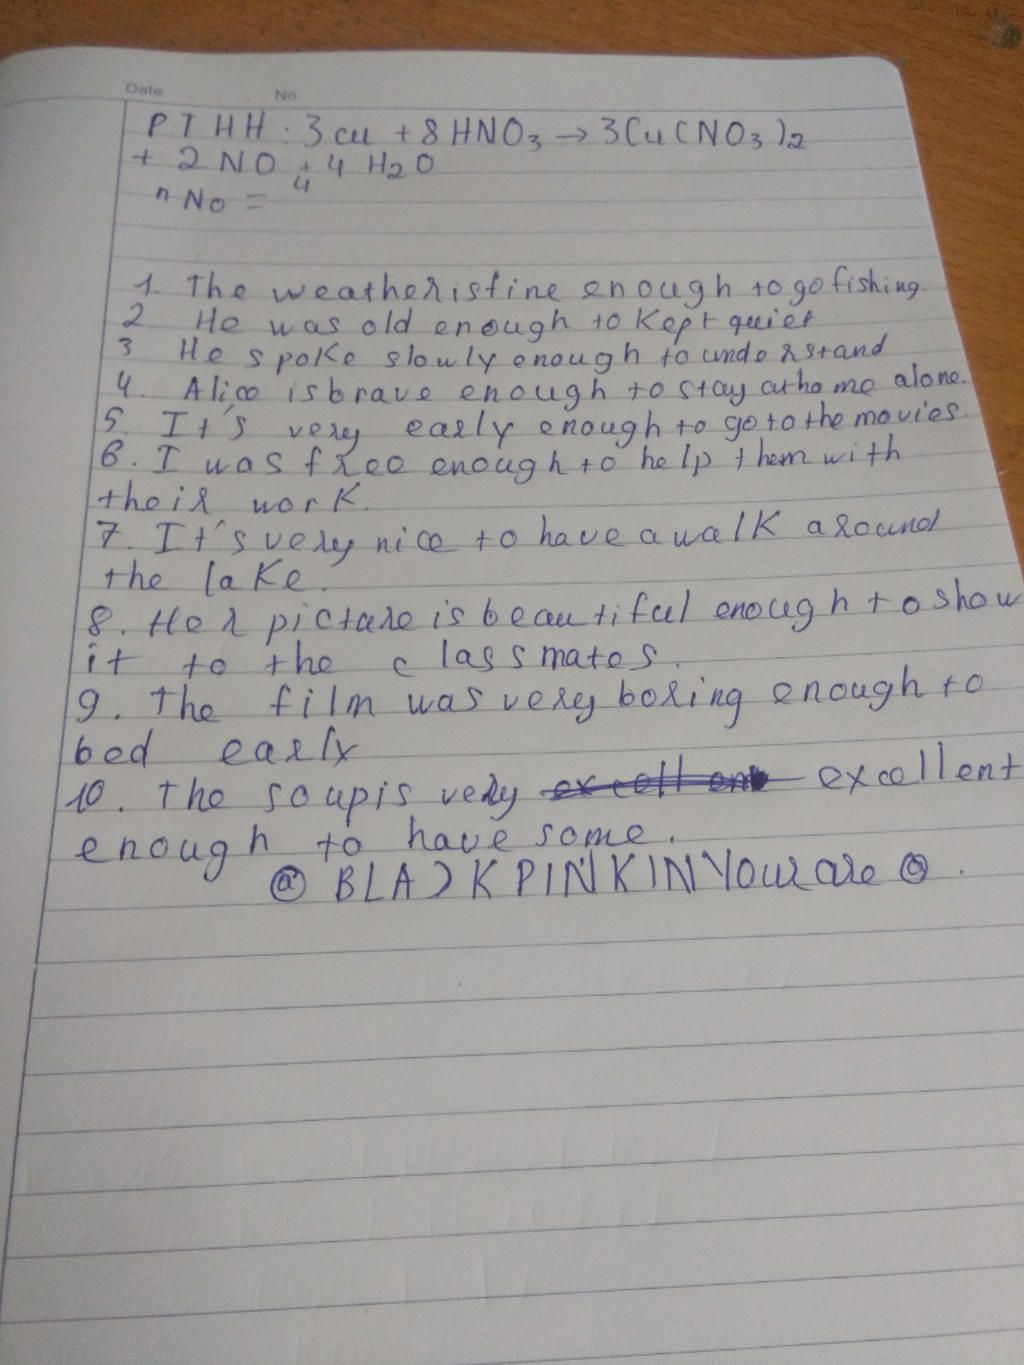 Date No
PTHH: 3cu + 8HNO3 → 3Cu(NO3)2
+ 2NO + 4 H2O
4
nNo =
1. The weather is fine enough to go fishing.
2 He was old enough to kept quiet
3 He spoke slowly enough to understand
4. Alice is brave enough to stay at home alone.
5. It's very early enough to go to the movies.
6. I was free enough to help them with
their work.
7. It's very nice to have a walk around
the lake.
8. Her picture is beautiful enough to show
it to the classmates.
9. The film was very boring enough to
bed early
10. The soup is very excellent
enough to have some.
@ BLACKPINKINYour are @ .